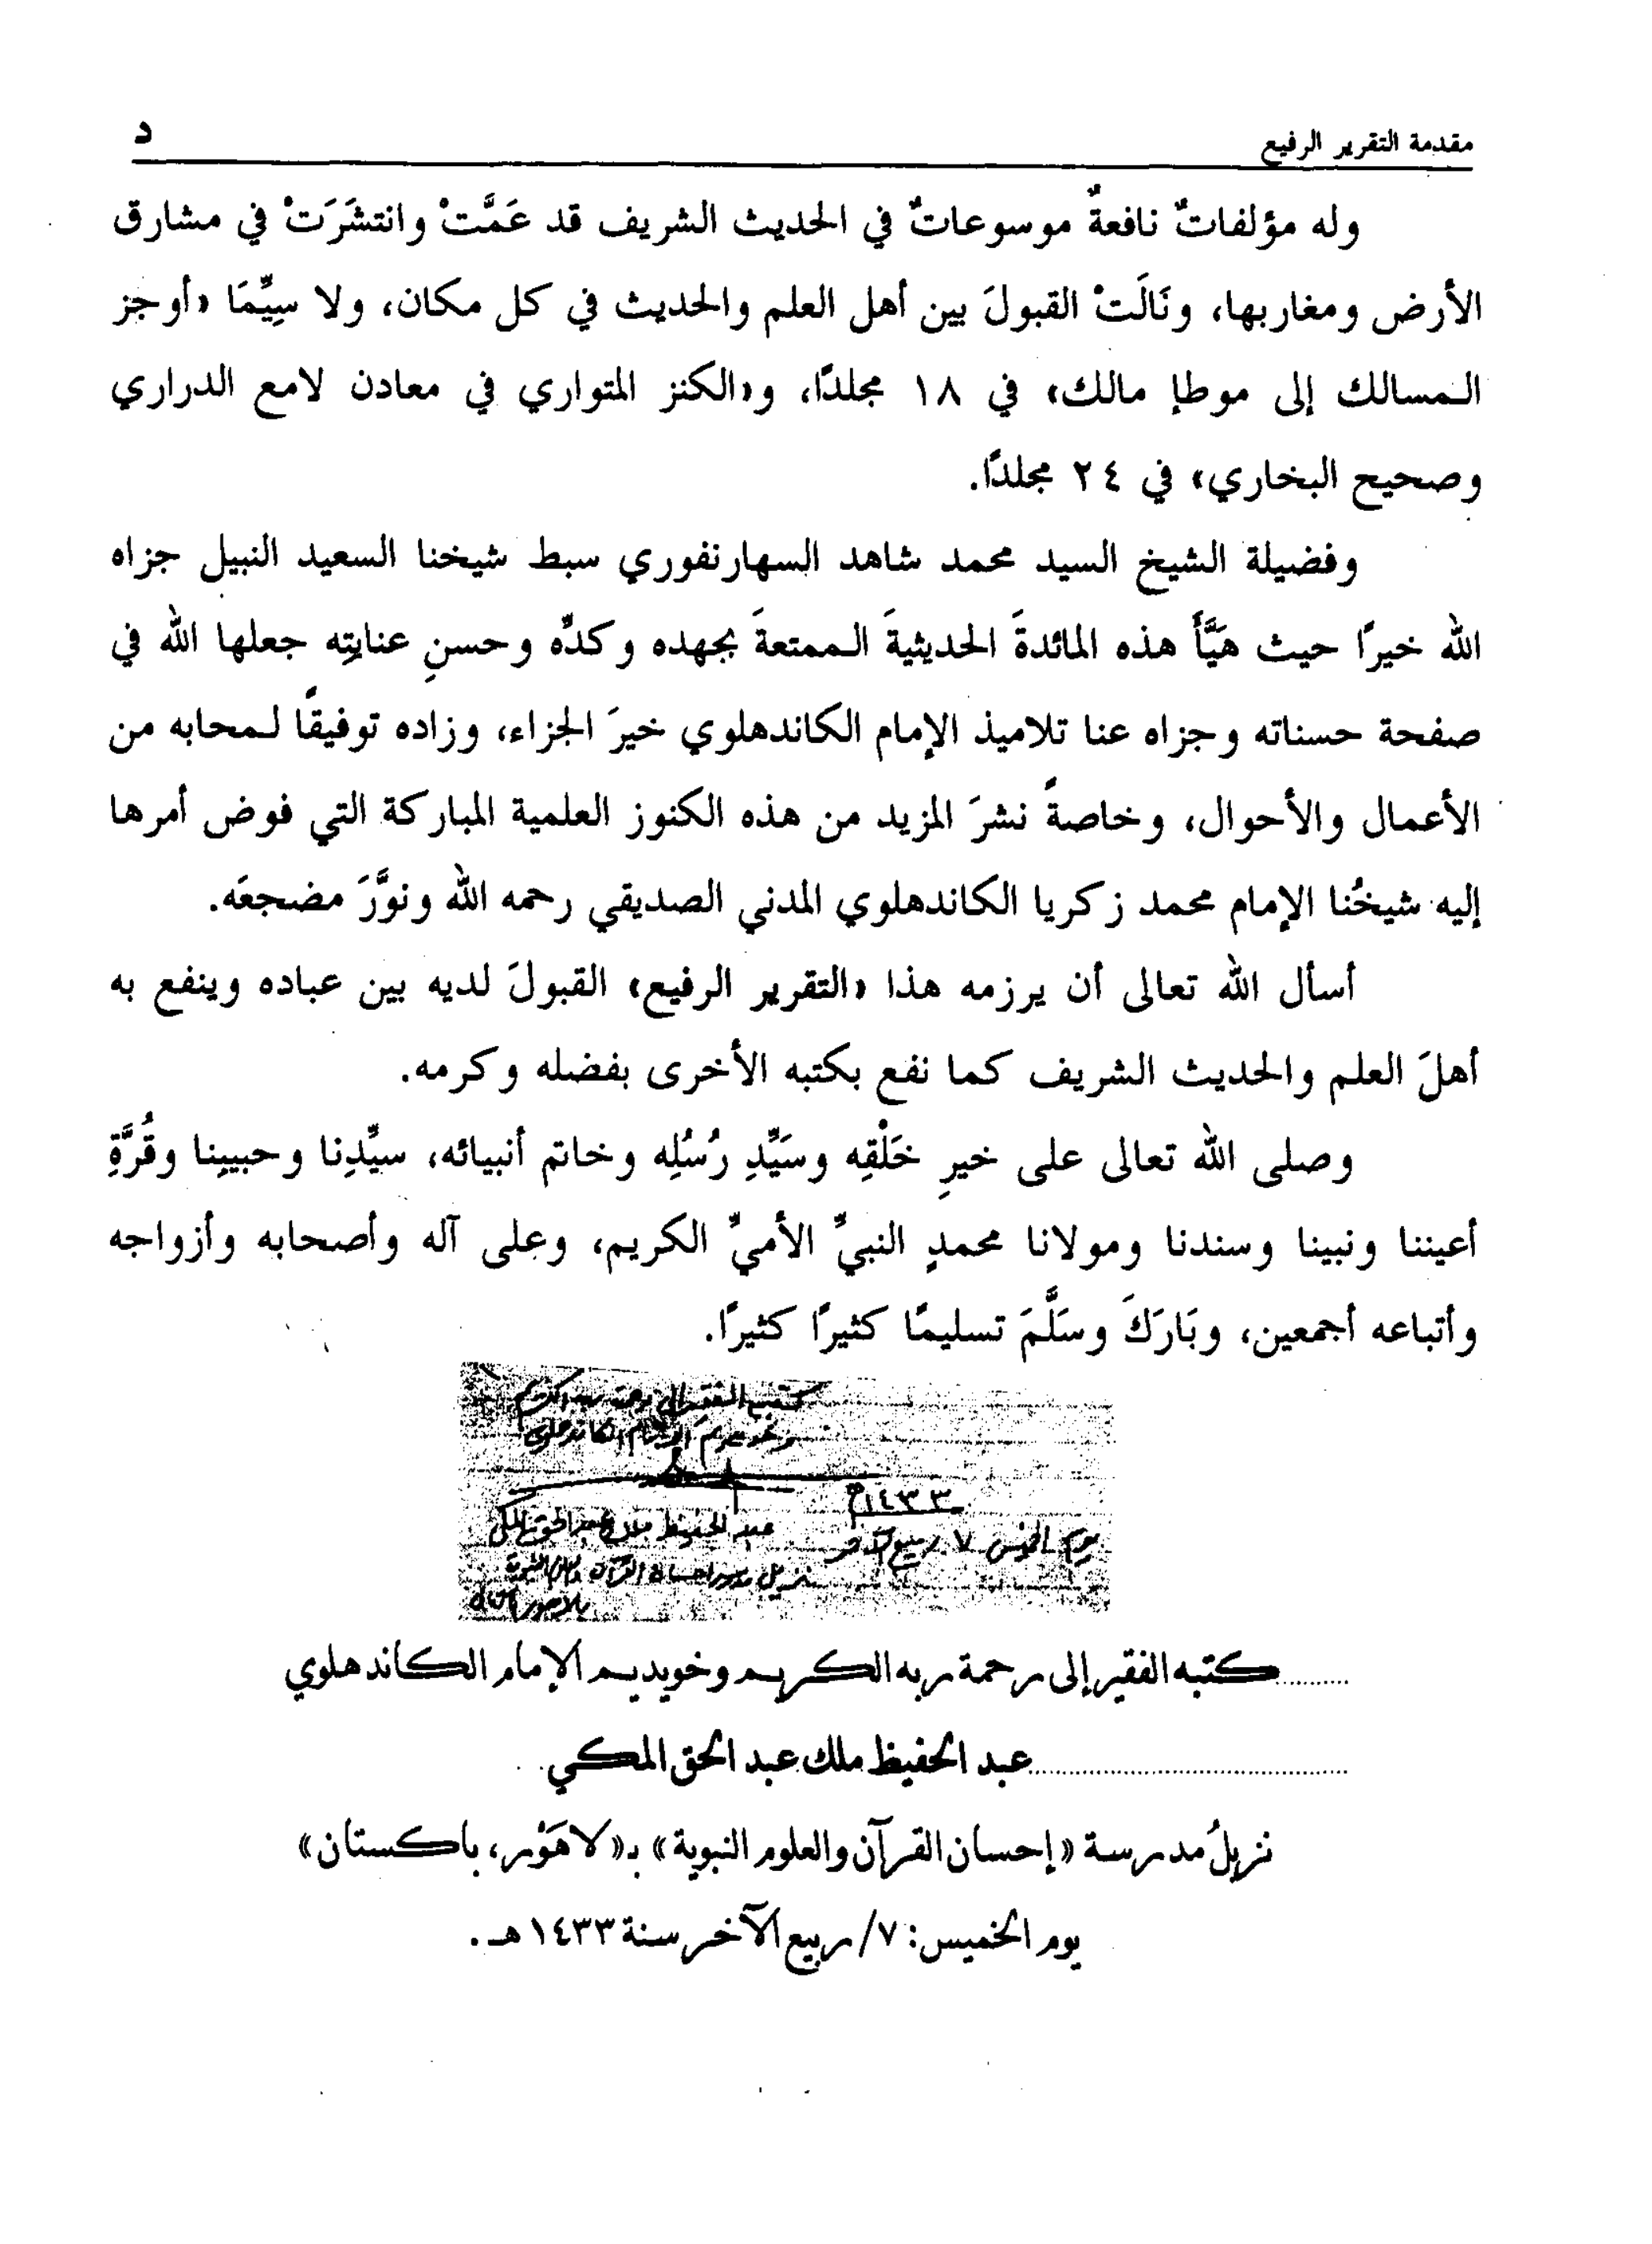 مقدمة التقرير الرفيع
د
وله مؤلفاتٌ نافعةٌ موسوعاتٌ في الحديث الشريف قد عَمَّتْ وانتشَرَتْ في مشارق
الأرض ومغاربها، ونَالَتْ القبولَ بين أهل العلم والحديث في كل مكان، ولا سِيِّمَا «أوجز
الـمسالك إلى موطإ مالك» في ١٨ مجلدًا، و«الكنز المتواري في معادن لامع الدراري
وصحيح البخاري» في ٢٤ مجلدًا.
وفضيلة الشيخ السيد محمد شاهد السهارنفوري سبط شيخنا السعيد النبيل جزاه
الله خيرًا حيث هَيَّأَ هذه المائدةَ الحديثيةَ الـممتعةَ بجهده وكدِّه وحسنِ عنايتِه جعلها الله في
صفحة حسناته وجزاه عنا تلاميذ الإمام الكاندهلوي خيرَ الجزاء، وزاده توفيقًا لـمحابه من
الأعمال والأحوال، وخاصةً نشرَ المزيد من هذه الكنوز العلمية المباركة التي فوض أمرها
إليه شيخُنا الإمام محمد زكريا الكاندهلوي المدني الصديقي رحمه الله ونوَّرَ مضجعَه.
أسأل الله تعالى أن يرزمه هذا «التقرير الرفيع» القبولَ لديه بين عباده وينفع به
أهلَ العلم والحديث الشريف كما نفع بكتبه الأخرى بفضله وكرمه.
وصلى الله تعالى على خيرِ خَلْقِه وسَيِّدِ رُسُلِه وخاتم أنبيائه، سيِّدِنا وحبيبِنا وقُرَّةِ
أعيننا ونبينا وسندنا ومولانا محمدٍ النبيِّ الأميِّ الكريم، وعلى آله وأصحابه وأزواجه
وأتباعه أجمعين، وبَارَكَ وسَلَّمَ تسليمًا كثيرًا كثيرًا.
كتبه الفقير إلى رحمة ربه الكريم
وخويدم الإمام الكاندهلوي
١٤٣٣هـ
عبد الحفيظ ملك عبد الحق المكي
يوم الخميس ٧ ربيع الآخر
كتبه الفقير إلى رحمة ربه الكريم وخويديم الإمام الكاندهلوي
عبد الحفيظ ملك عبد الحق المكي
نزيلُ مدرسة «إحسان القرآن والعلوم النبوية» بـ«لاهَوْر، باكستان»
يوم الخميس: ٧/ ربيع الآخر سنة ١٤٣٣هـ.